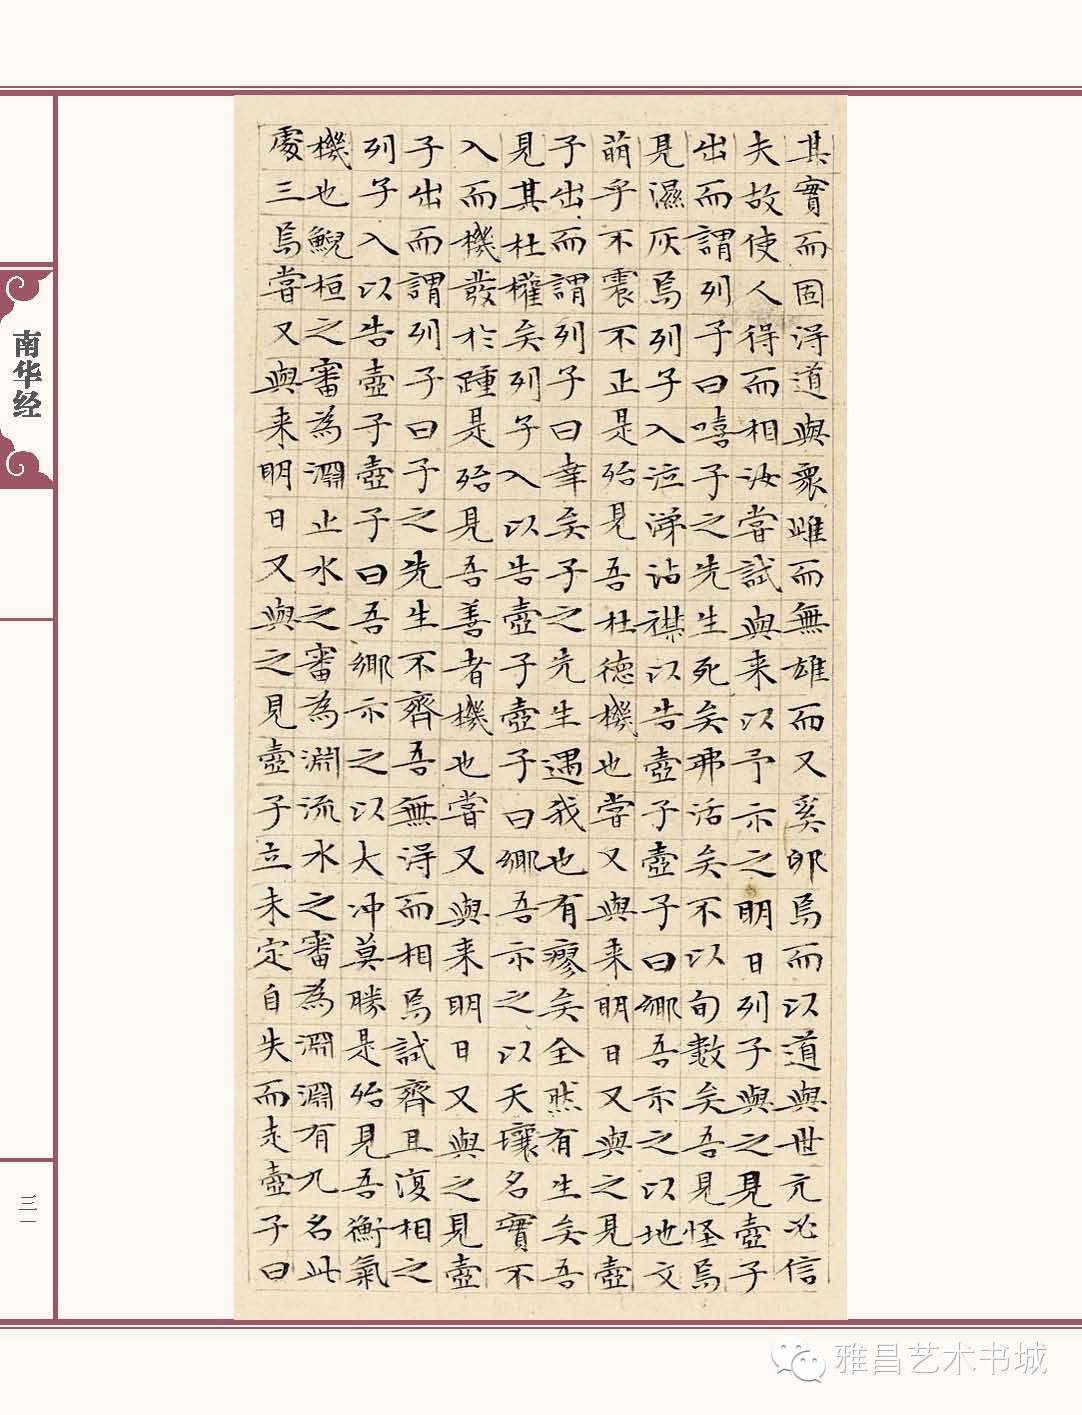 其實而固淂道與衆雌而無雄而又奚卵焉而以道與世亢必信
夫故使人得而相汝嘗試與来以予示之明日列子與之見壺子
出而謂列子曰嘻子之先生死矣弗活矣不以旬數矣吾見怪焉
見濕灰焉列子入泣涕沾襟以告壺子壺子曰鄉吾示之以地文
萌乎不震不正是殆見吾杜德機也嘗又與来明日又與之見壺
子出而謂列子曰幸矣子之先生遇我也有瘳矣全然有生矣吾
見其杜權矣列子入以告壺子壺子曰鄉吾示之以天壤名實不
入而機發於踵是殆見吾善者機也嘗又與来明日又與之見壺
子出而謂列子曰子之先生不齊吾無淂而相焉試齊且復相之
列子入以告壺子壺子曰吾鄉示之以大冲莫勝是殆見吾衡氣
機也鯢桓之審為淵止水之審為淵流水之審為淵淵有九名此
處三焉嘗又與来明日又與之見壺子立未定自失而走壺子曰
南华经
三一
雅昌艺术书城